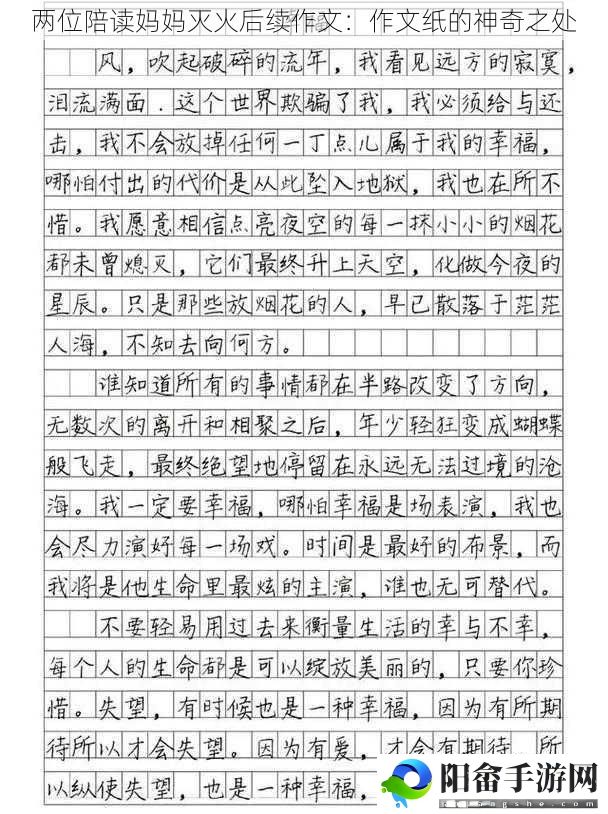 两位陪读妈妈灭火后续作文：作文纸的神奇之处
风，吹起破碎的流年，我看见远方的寂寞，
泪流满面．这个世界欺骗了我，我必须给与还
击，我不会放掉任何一丁点儿属于我的幸福，
哪怕付出的代价是从此坠入地狱，我也在所不
惜。我愿意相信点亮夜空的每一抹小小的烟花
都未曾熄灭，它们最终升上天空，化做今夜的
星辰。只是那些放烟花的人，早已散落于茫茫
人海，不知去向何方。
谁知道所有的事情都在半路改变了方向，
无数次的离开和相聚之后，年少轻狂变成蝴蝶
般飞走，最终绝望地停留在永远无法过境的沧
海。我一定要幸福，哪怕幸福是场表演，我也
会尽力演好每一场戏。时间是最好的布景，而
我将是他生命里最炫的主演，谁也无可替代。
不要轻易用过去来衡量生活的幸与不幸，
每个人的生命都是可以绽放美丽的，只要你珍
惜。失望，有时候也是一种幸福，因为有所期
待所以才会失望。因为有爱，才会有期待，所
以纵使失望，也是一种幸福，
阳畲手游网